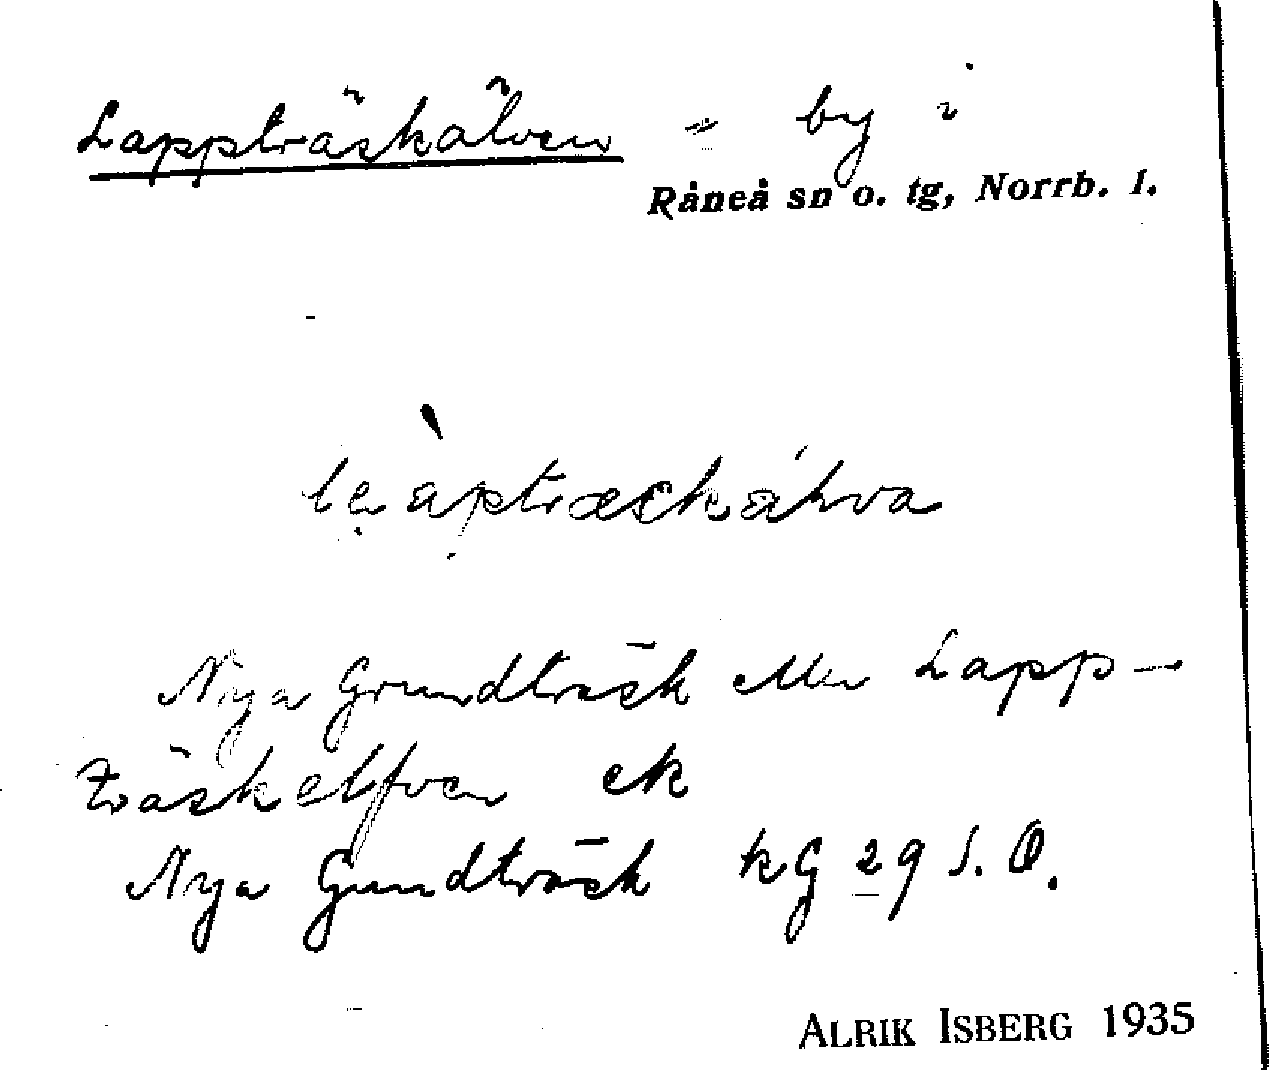 Lappträskälven = by i
Råneå sn o. tg, Norrb. l.
Nya Grundträsk eller Lapp-
träskelfven ek
Nya Gundträsk kG 29 S. O.
ALRIK ISBERG 1935